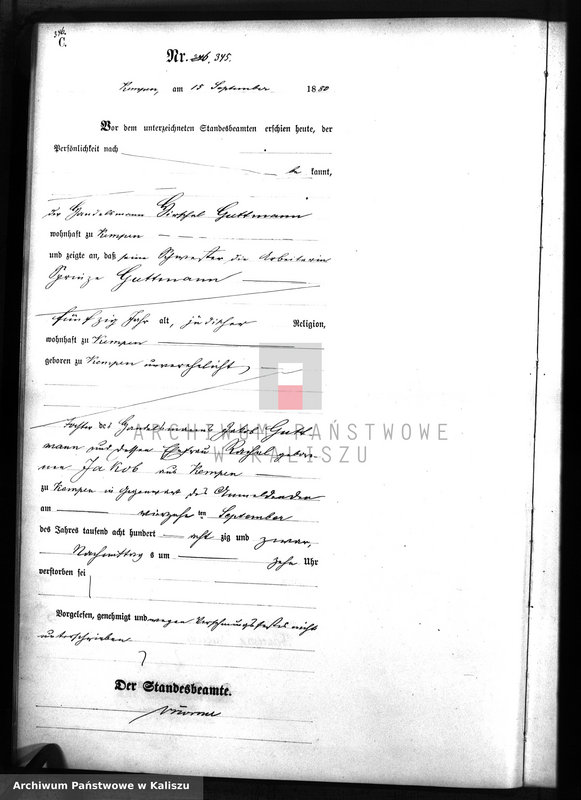 346.
C.
Nr. 345.
Kempen, am 15 September 1880
Vor dem unterzeichneten Standesbeamten erschien heute, der
Persönlichkeit nach
be kannt,
der Handelsmann Hirschel Guttmann
wohnhaft zu Kempen
und zeigte an, daß seine Schwester die Arbeiterin
Prinze Guttmann
fünfzig Jahr alt, jüdischer Religion,
wohnhaft zu Kempen
geboren zu Kempen unverehelicht,
Tochter des Handelsmanns Jakob Gutt
mann und dessen Ehefrau Rachel gebor-
nen Jakob aus Kempen
zu Kempen in Gegenwart des Anmeldenden
am vierzehn ten September
des Jahres tausend acht hundert acht zig und zwar,
Nachmittag s um zehn Uhr
verstorben sei
Vorgelesen, genehmigt und wegen Versöhnungsfestes nicht
unterschrieben
Der Standesbeamte.
ARCHIWUM PAŃSTWOWE
W KALISZU
Archiwum Państwowe w Kaliszu